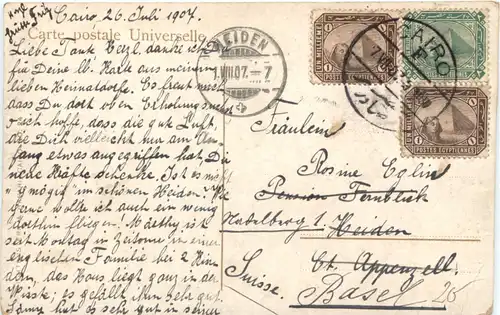 Cairo, 26. Juli 1907.
Carte postale Universelle
Liebe Tante danke ich Dir
für Deine lb. Karte aus meinem
lieben Heimaldorfe. Es freut mich
dass Du dort oben Erholung suchst
hoffe, dass die gute Luft,
die Dich vielleicht nur am An-
fang etwas angegriffen hat, Dir
neue Kräfte schenke. Ist es
mögig im schönen Heiden! Wie
ganz wollte ich auch ein wenig
dorthin fliegen! Marthy ist
seit Montag in in einer
englischen Familie bei 2 Kin-
dern, das Haus liegt ganz in der
Wüste; es gefällt ihm sehr gut.
hat es sehr gut in seiner
HEIDEN
VIII.07.–7
UN MILLIEME
POSTES EGYPTIENNES
CAIRO
UN MILLIEME
POSTES EGYPTIENNES
Fräulein
Rosine Eglin
Pension Fernblick
Nadelberg 1. Heiden
Ct. Appenzell.
Suisse. Basel 20